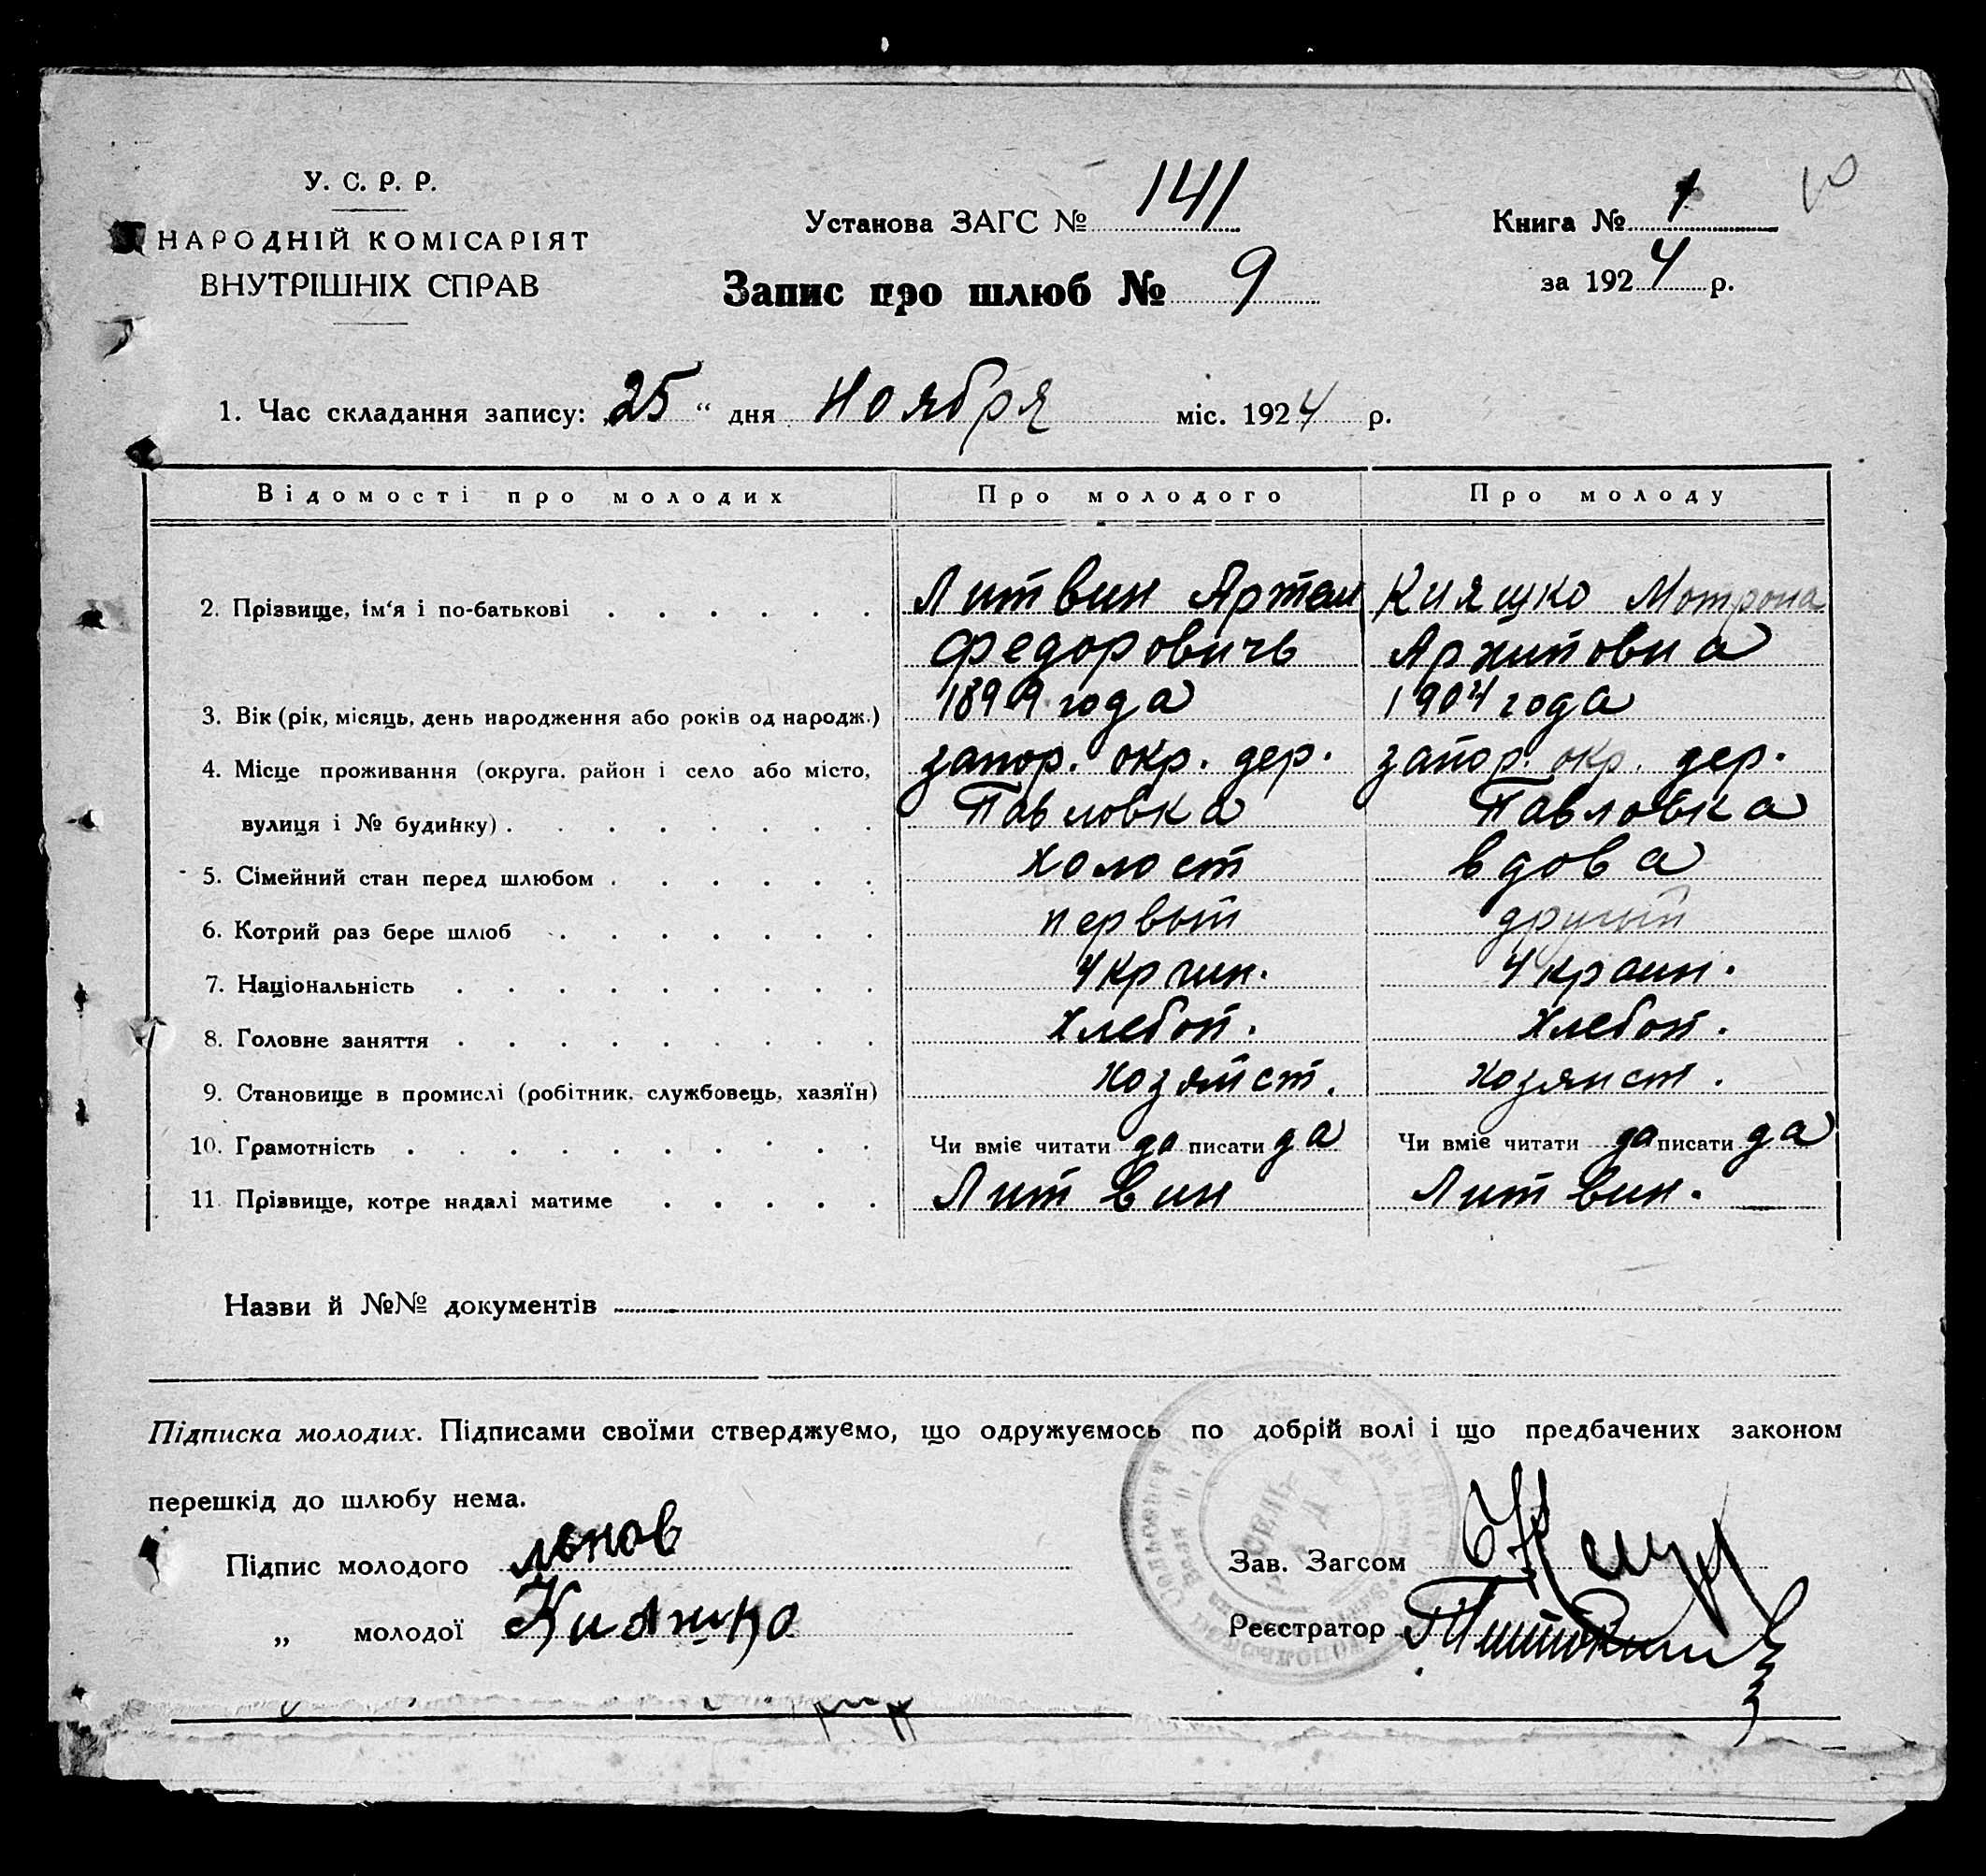 У. С. Р. Р.
НАРОДНІЙ КОМІСАРІЯТ
ВНУТРІШНІХ СПРАВ
Установа ЗАГС № 141
Книга № 1
Запис про шлюб № 9
за 1924 р.
1. Час складання запису: „25“ дня Ноября міс. 1924 р.
Відомості про молодих Про молодого Про молоду
2. Прізвище, ім'я і по-батькові Литвин Артем Кияшко Мотрона
Федоровичь Архиповна
3. Вік (рік, місяць, день народження або років од народж.) 1899 года 1904 года
4. Місце проживання (округа, район і село або місто, запор. окр. дер. запор. окр. дер.
вулиця і № будинку) Павловка Павловка
5. Сімейний стан перед шлюбом холост вдова
6. Котрий раз бере шлюб первый другий
7. Національність Украин. Украин.
8. Головне заняття хлебоп. хлебоп.
9. Становище в промислі (робітник, службовець, хазяїн) хозяист. хозяист.
10. Грамотність Чи вміє читати да писати да Чи вміє читати да писати да
11. Прізвище, котре надалі матиме Литвин Литвин.
Назви й №№ документів
Підписка молодих. Підписами своїми стверджуємо, що одружуємось по добрій волі і що предбачених законом
перешкід до шлюбу нема.
Підпис молодого
Зав. Загсом
„ молодої Кияшко
Реєстратор